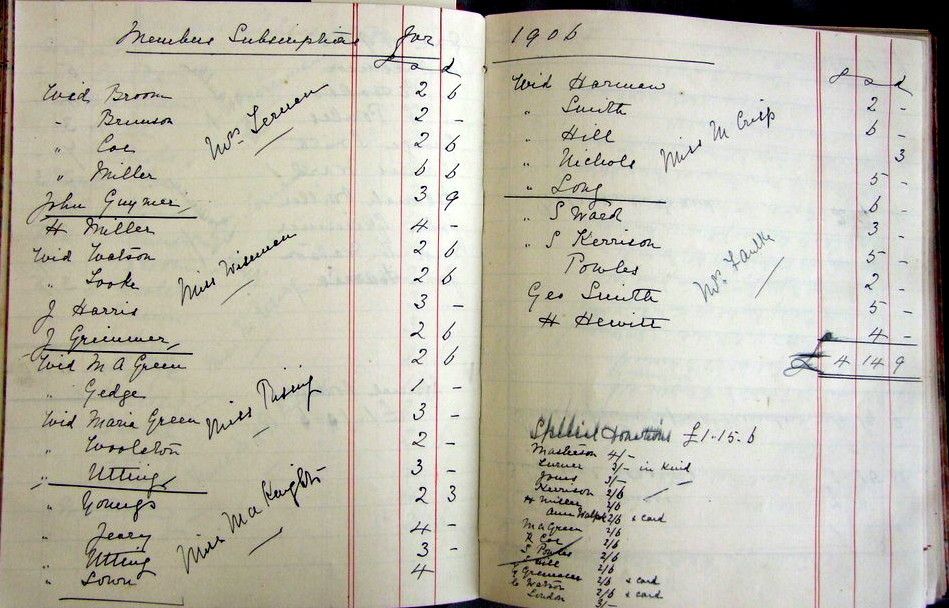 Members Subscriptions for 1906
s d
Wid Broom 2 6
" Brunson 2 -
" Coe 2 6
" Miller 6 6
Mrs
John Guymer, 3 9
H Miller 4 -
Wid Watson 2 6
" Cooke 2 6
Miss Wiseman
J Harris 3 -
J Greimmer, 2 6
Wid M A Green 2 6
" Gedge 1 -
Wid Maria Green 3 -
Miss Rising
" Woolston 2 -
" Utting 3 -
" Youngs 2 3
" Jeary 4 -
Miss M A Knights
" Utting 3 -
" Sown 4
£ s d
Wid Harman 2 -
" Smith 6 -
" Hill 3
" Nichols 5 -
Miss M Crisp
" Long 6 -
" S Ward 3 -
" S Kerrison 5 -
Powles 2 -
Mrs Faulke
Geo Smith 5 -
H Hewitt 4 -
£ 4 14 9
Special Donations £1-15-6
Masterson 4/-
Turner 3/- in kind
Jones 3/-
Kerrison 2/6
H Miller 2/6
2/6 & card
M A Green 2/6
R Coe 2/6
S Powles 2/6
Hill
Greimmer 2/6 & card
Watson 2/6
London 2/6 & card
3/-